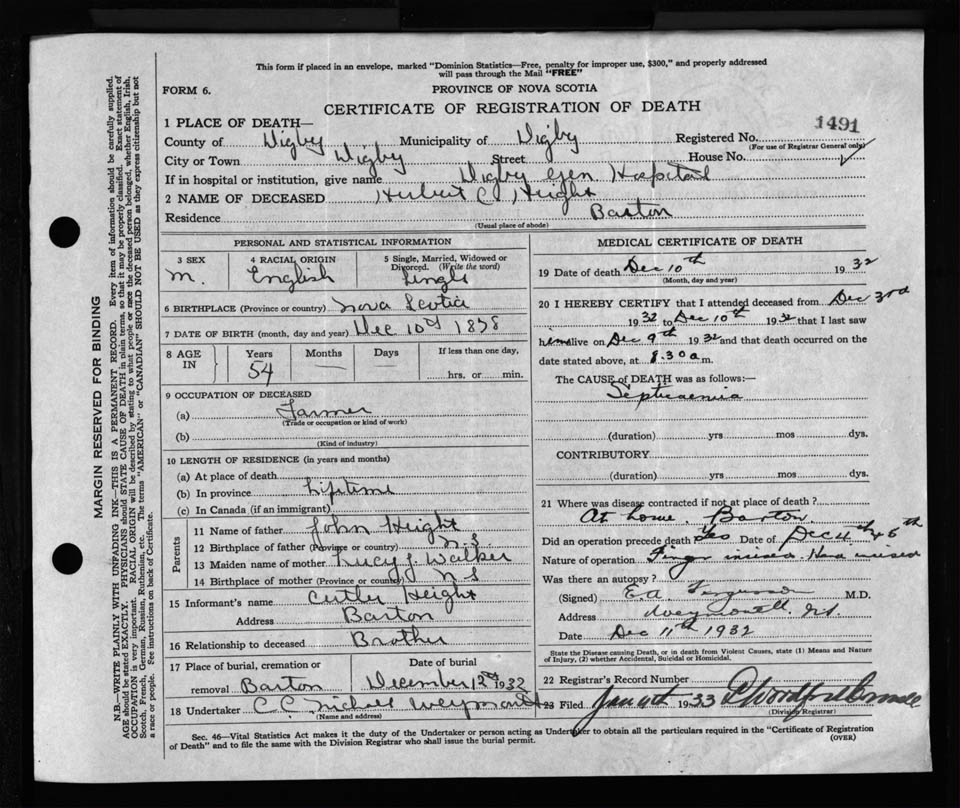 This form if placed in an envelope, marked "Dominion Statistics—Free, penalty for improper use, $300," and properly addressed
will pass through the Mail "FREE"
FORM 6.
PROVINCE OF NOVA SCOTIA
CERTIFICATE OF REGISTRATION OF DEATH
1 PLACE OF DEATH—
1491
County of Digby Municipality of Digby Registered No.
(For use of Registrar General only)
City or Town Digby Street House No.
If in hospital or institution, give name Digby Gen Hospital
2 NAME OF DECEASED Herbert C Height
Residence Barton
(Usual place of abode)
PERSONAL AND STATISTICAL INFORMATION
3 SEX 4 RACIAL ORIGIN 5 Single, Married, Widowed or
Divorced. (Write the word)
M. English Single
6 BIRTHPLACE (Province or country) Nova Scotia
7 DATE OF BIRTH (month, day and year) Dec 10th 1878
8 AGE IN Years Months Days If less than one day,
54 — hrs. or min.
9 OCCUPATION OF DECEASED
(a) Farmer
(Trade or occupation or kind of work)
(b)
(Kind of industry)
10 LENGTH OF RESIDENCE (in years and months)
(a) At place of death
(b) In province Lifetime
(c) In Canada (if an immigrant)
Parents
11 Name of father John Height
12 Birthplace of father (Province or country) N.S
13 Maiden name of mother Lucy J. Walker
14 Birthplace of mother (Province or county) N S
15 Informant's name Cutler Height
Address Barton
16 Relationship to deceased Brother
17 Place of burial, cremation or Date of burial
removal Barton December 12th 1932
18 Undertaker C. C.
(Name and address)
MEDICAL CERTIFICATE OF DEATH
19 Date of death Dec 10th 1932
(Month, day and year)
20 I HEREBY CERTIFY that I attended deceased from Dec 3rd
1932 to Dec 10th 1932 that I last saw
him alive on Dec 9th 1932 and that death occurred on the
date stated above, at 8.30 a.m.
The CAUSE of DEATH was as follows:—
Septicaemia
(duration) yrs mos dys.
CONTRIBUTORY
(duration) yrs mos dys.
21 Where was disease contracted if not at place of death?
At home. Barton.
Did an operation precede death Yes Date of Dec 4th
Nature of operation Finger incised. Hand incised
Was there an autopsy?
(Signed) E.A. Ferguson M.D.
Address
Date Dec 11th 1932
State the Disease causing Death, or in death from Violent Causes, state (1) Means and Nature
of Injury, (2) whether Accidental, Suicidal or Homicidal.
22 Registrar's Record Number
23 Filed 1933
(Division Registrar)
Sec. 46—Vital Statistics Act makes it the duty of the Undertaker or person acting as Undertaker to obtain all the particulars required in the "Certificate of Registration
of Death" and to file the same with the Division Registrar who shall issue the burial permit. (OVER)
MARGIN RESERVED FOR BINDING
N.B.—WRITE PLAINLY WITH UNFADING INK—THIS IS A PERMANENT RECORD. Every item of information should be carefully supplied.
AGE should be stated EXACTLY. PHYSICIANS should STATE CAUSE OF DEATH in plain terms, so that it may be properly classified. Exact statement of
OCCUPATION is very important. RACIAL ORIGIN will be described by stating to what people or race the deceased person belonged, whether English, Irish,
Scotch, French, German, Russian, Ruthenian, etc. The terms "AMERICAN" or "CANADIAN" SHOULD NOT BE USED as they express citizenship but not
a race or people. See instructions on back of Certificate.